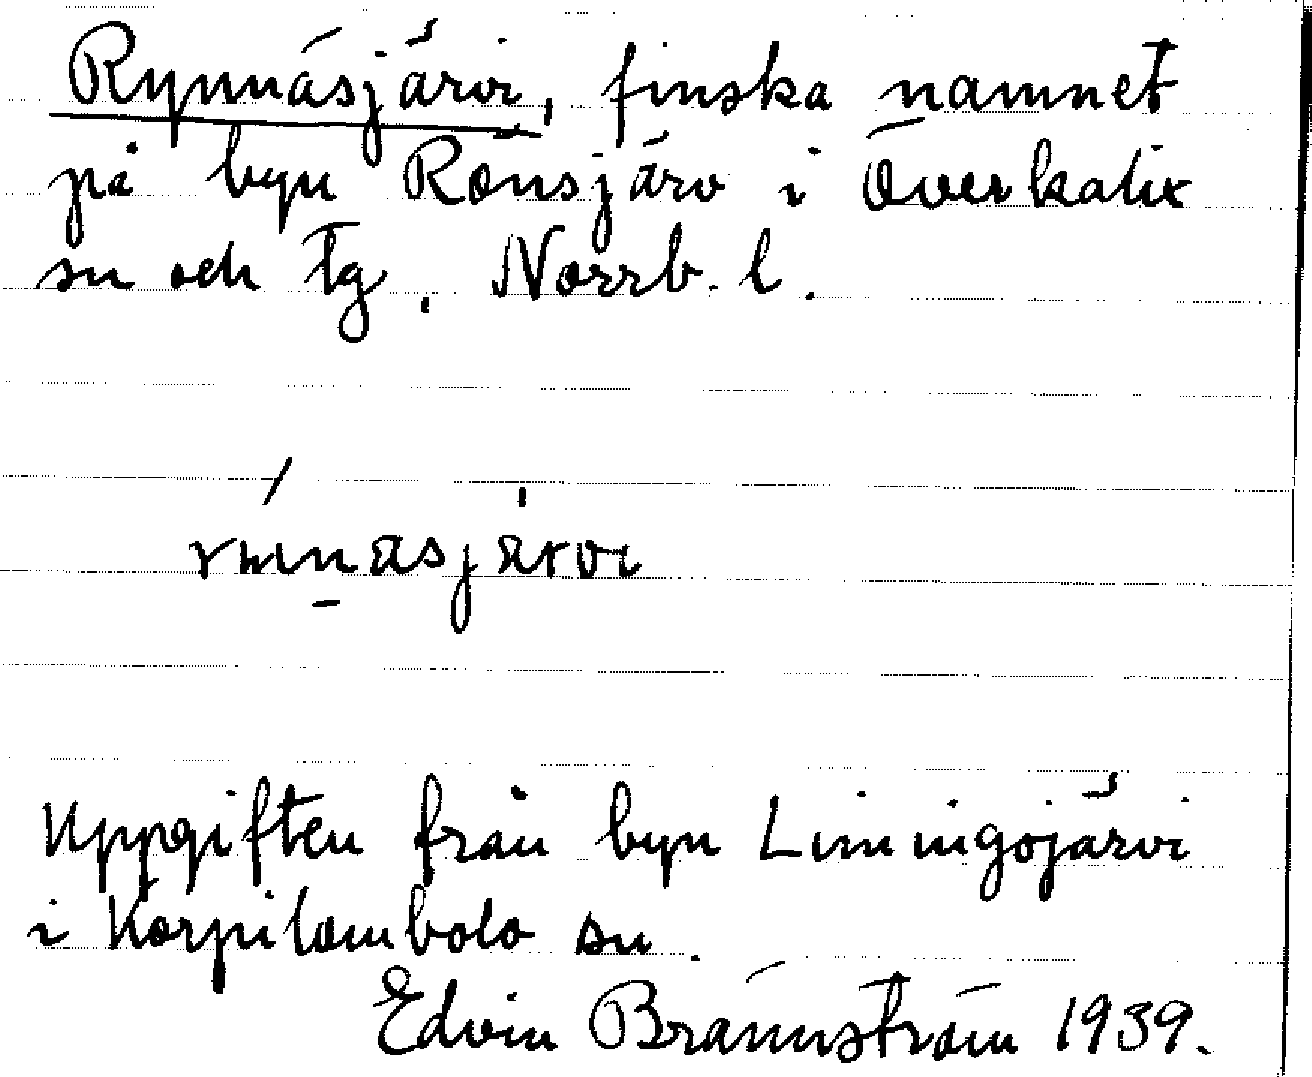 Rynnäsjärvi, finska namnet
på byn Rönsjärv i Överkalix
sn och tg. Norrb. l.
Uppgiften från byn Liminigojärvi
i Korpilombolo sn.
Edvin Brännström 1939.